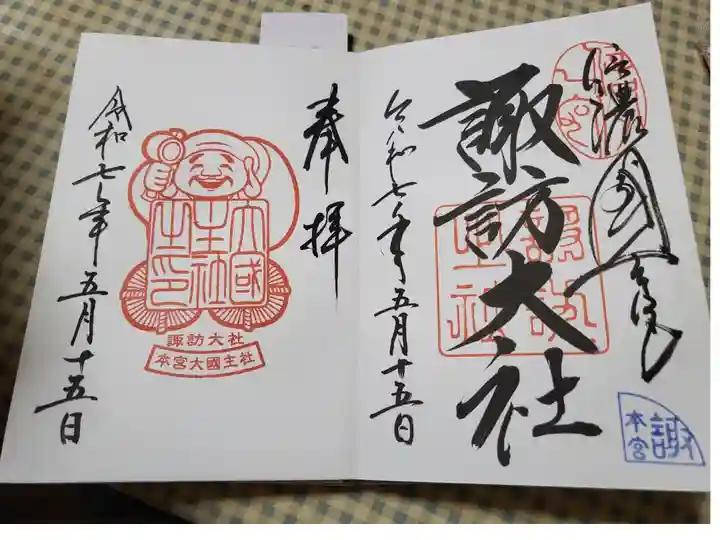 信濃國一之宮
諏訪大社
令和七年五月十五日
諏
本宮
奉拝
大國
主社
之印
諏訪大社
本宮大國主社
令和七年五月十五日